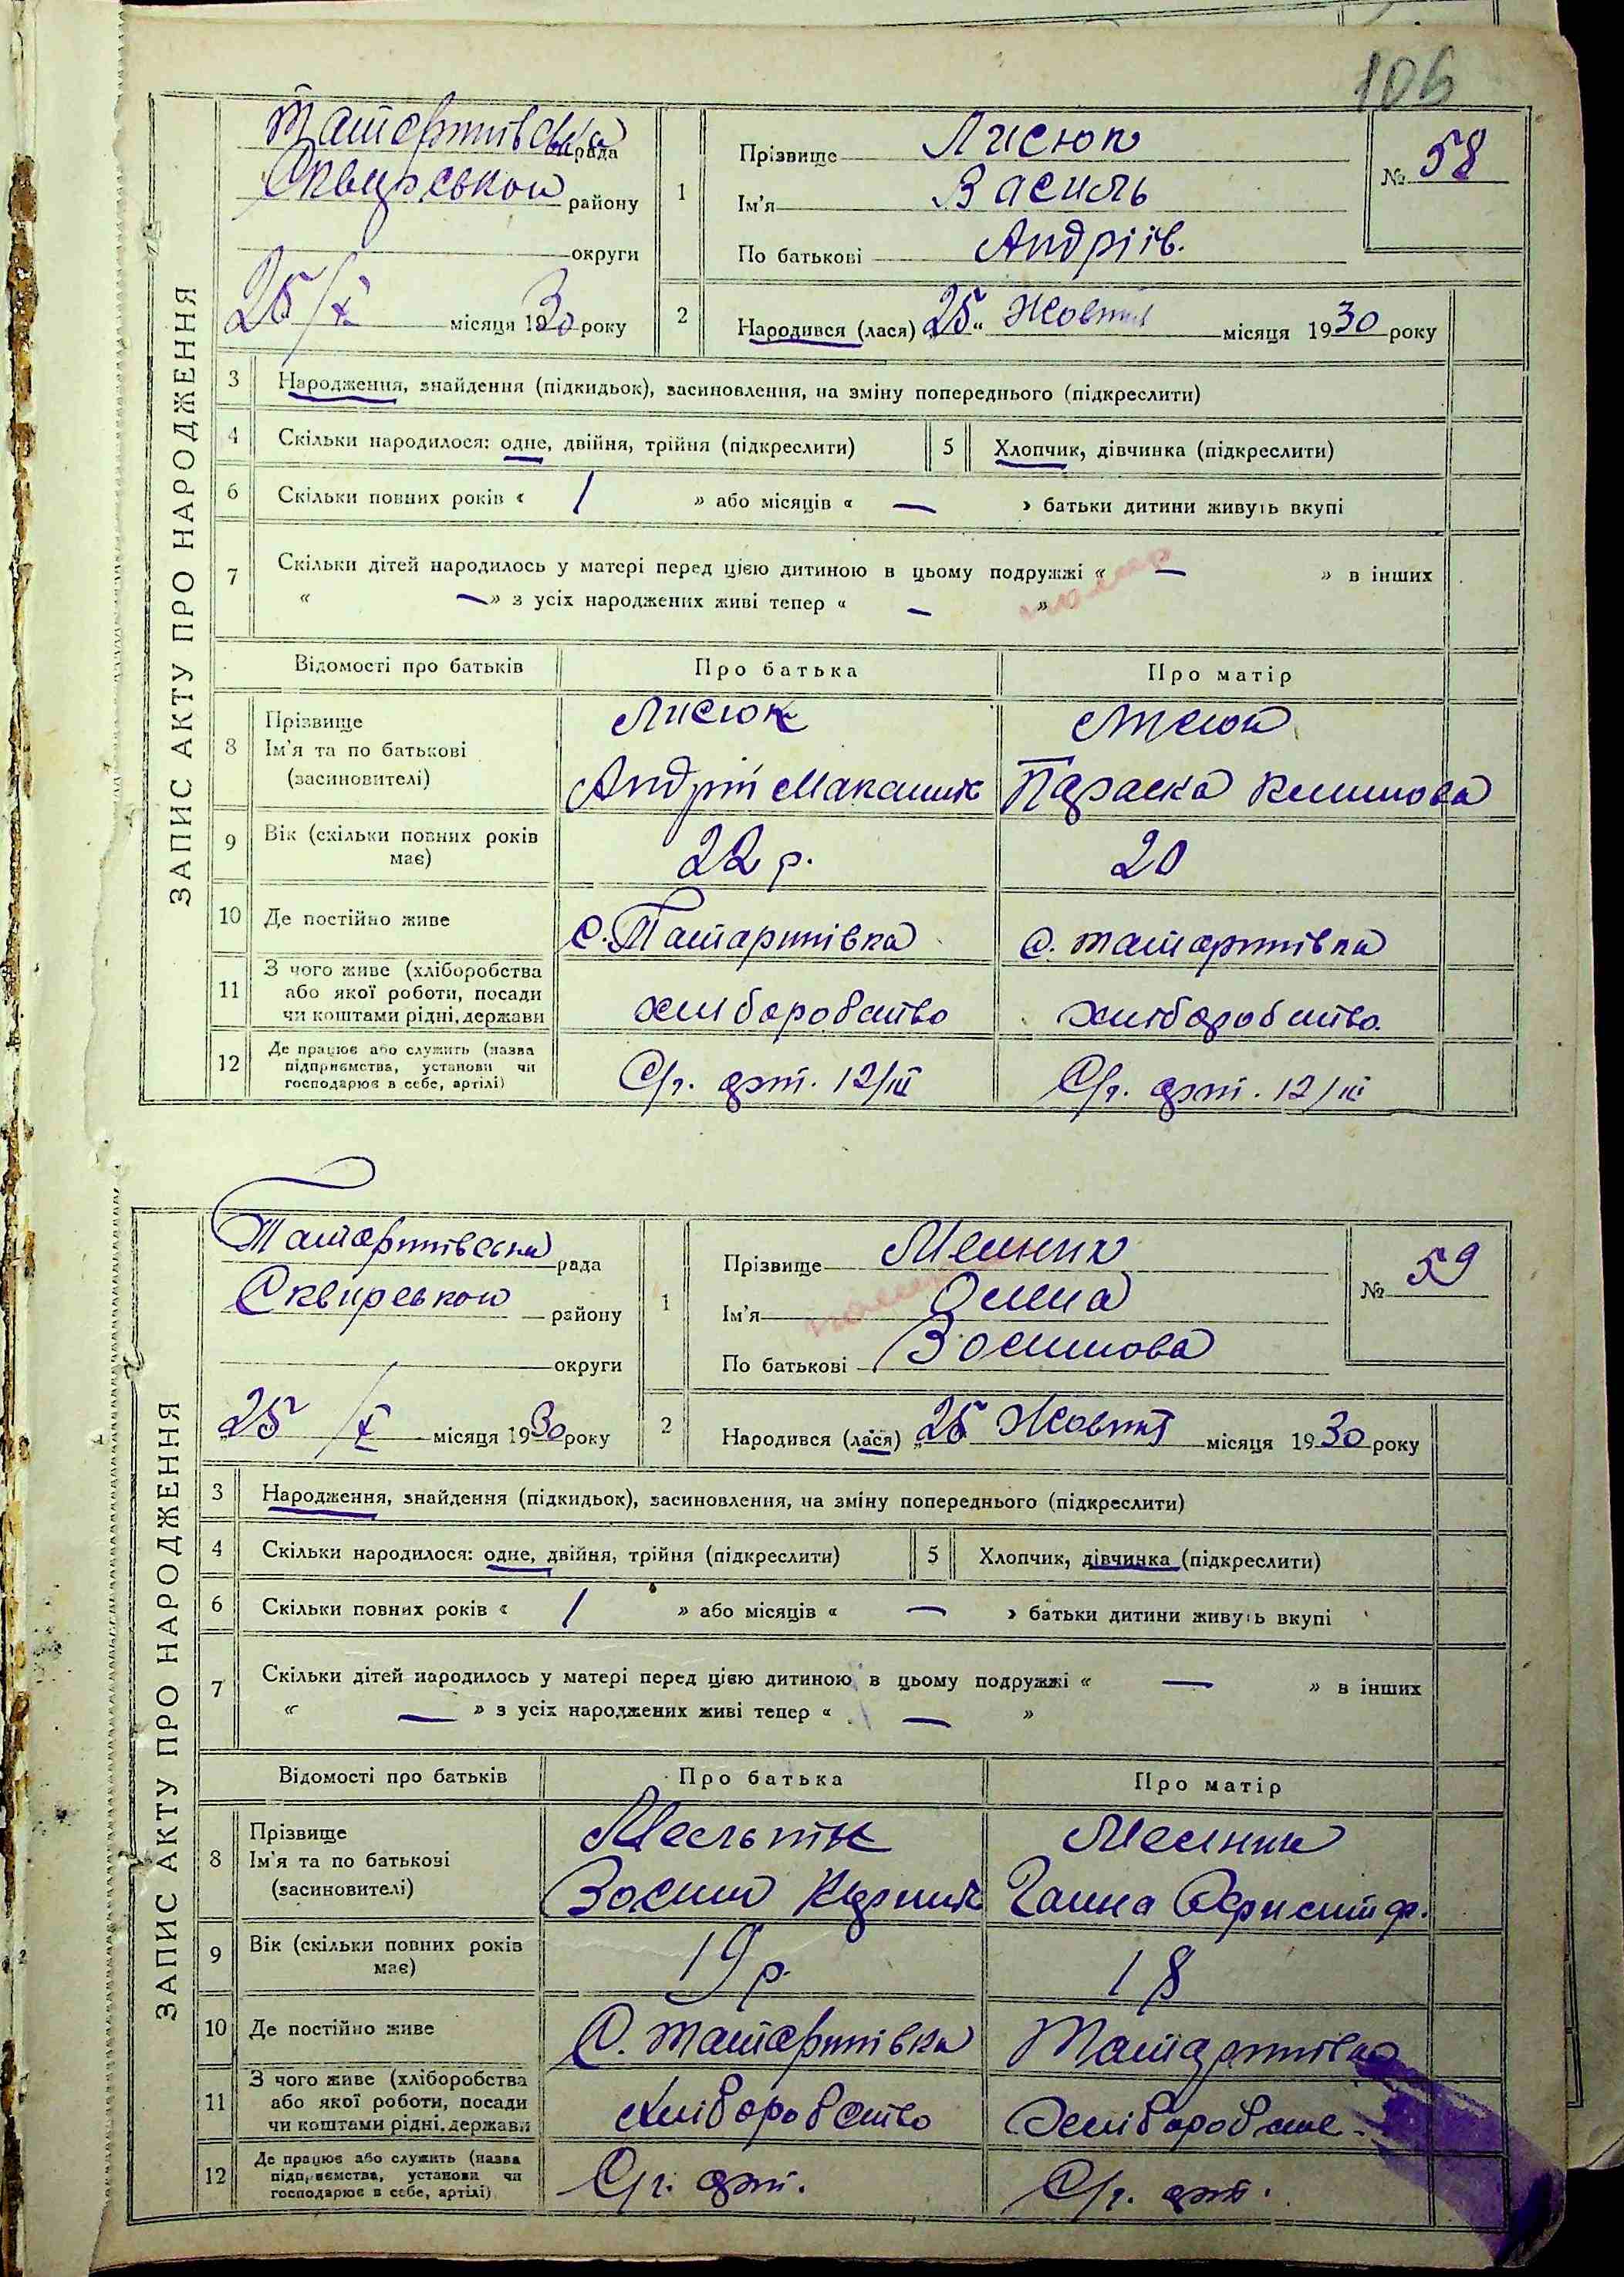 106
ЗАПИС АКТУ ПРО НАРОДЖЕННЯ
Татаринівська рада
Сквирської району
округи
25/X місяця 1930 року
1
Прізвище Лисюк
Ім'я Василь
По батькові Андріїв.
№ 58
2
Народився (лася) „25“ Жовтня місяця 1930 року
3 Народження, знайдення (підкидьок), засиновлення, на зміну попереднього (підкреслити)
4 Скільки народилося: одне, двійня, трійня (підкреслити) 5 Хлопчик, дівчинка (підкреслити)
6 Скільки повних років « 1 » або місяців « — » батьки дитини живуть вкупі
7 Скільки дітей народилось у матері перед цією дитиною в цьому подружжі « — » в інших
« — » з усіх народжених живі тепер « — »
Відомості про батьків Про батька Про матір
8 Прізвище Лисюк Лисюк
Ім'я та по батькові (засиновителі) Андрій Параска
9 Вік (скільки повних років має) 22 р. 20
10 Де постійно живе с. Татаринівка с. Татаринівка
11 З чого живе (хліборобства або якої роботи, посади чи коштами рідні, держави хліборобство хліборобство.
12 Де працює або служить (назва підприємства, установи чи господарює в себе, артілі) С/г. арт. 12/III С/г. арт. 12/III
ЗАПИС АКТУ ПРО НАРОДЖЕННЯ
Татаринівська рада
Сквирської району
округи
25/X місяця 1930 року
1
Прізвище Мельник
Ім'я
По батькові Зосимова
№ 59
2
Народився (лася) „25 Жовтня місяця 1930 року
3 Народження, знайдення (підкидьок), засиновлення, на зміну попереднього (підкреслити)
4 Скільки народилося: одне, двійня, трійня (підкреслити) 5 Хлопчик, дівчинка (підкреслити)
6 Скільки повних років « 1 » або місяців « — » батьки дитини живуть вкупі
7 Скільки дітей народилось у матері перед цією дитиною в цьому подружжі « — » в інших
« — » з усіх народжених живі тепер « — »
Відомості про батьків Про батька Про матір
8 Прізвище Мельник Мельник
Ім'я та по батькові (засиновителі) Зосим Ганна
9 Вік (скільки повних років має) 19 р. 18
10 Де постійно живе С. Татаринівка Татаринівка
11 З чого живе (хліборобства або якої роботи, посади чи коштами рідні, держави хліборобство
12 Де працює або служить (назва підприємства, установи чи господарює в себе, артілі) С/г. арт. С/г. арт.